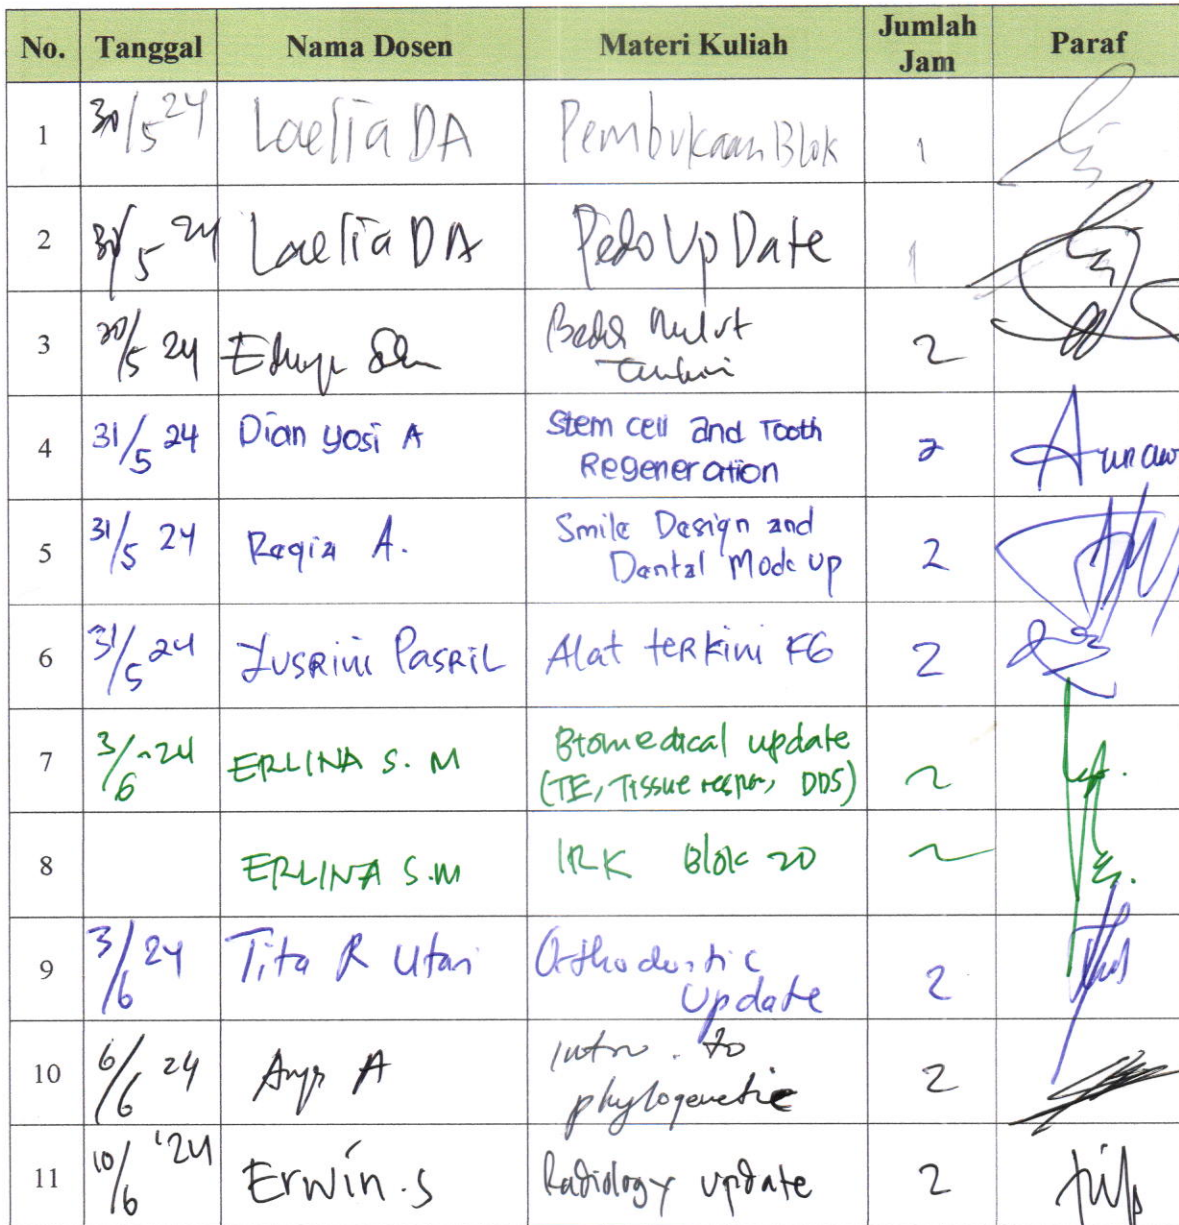 No. Tanggal Nama Dosen Materi Kuliah Jumlah Jam Paraf
1 30/5 24 Laelia DA Pembukaan Blok 1
2 30/5 24 Laelia DA Pedo Up Date 1
3 30/5 24 Bedah Mulut Terkini 2
4 31/5 24 Dian Yosi A Stem cell and Tooth Regeneration 2
5 31/5 24 Regia A. Smile Design and Dental Mock up 2
6 31/5 24 Yusrini Pasril Alat terkini KG 2
7 3/6 24 ERLINA S. M Biomedical update (TE, Tissue respon, DDS) 2
8 ERLINA S.M IRK Blok 20 2
9 3/6 24 Tita R Utari Orthodontic Update 2
10 6/6 24 A Intro. to phylogenetic 2
11 10/6 '24 Erwin.s Radiology update 2